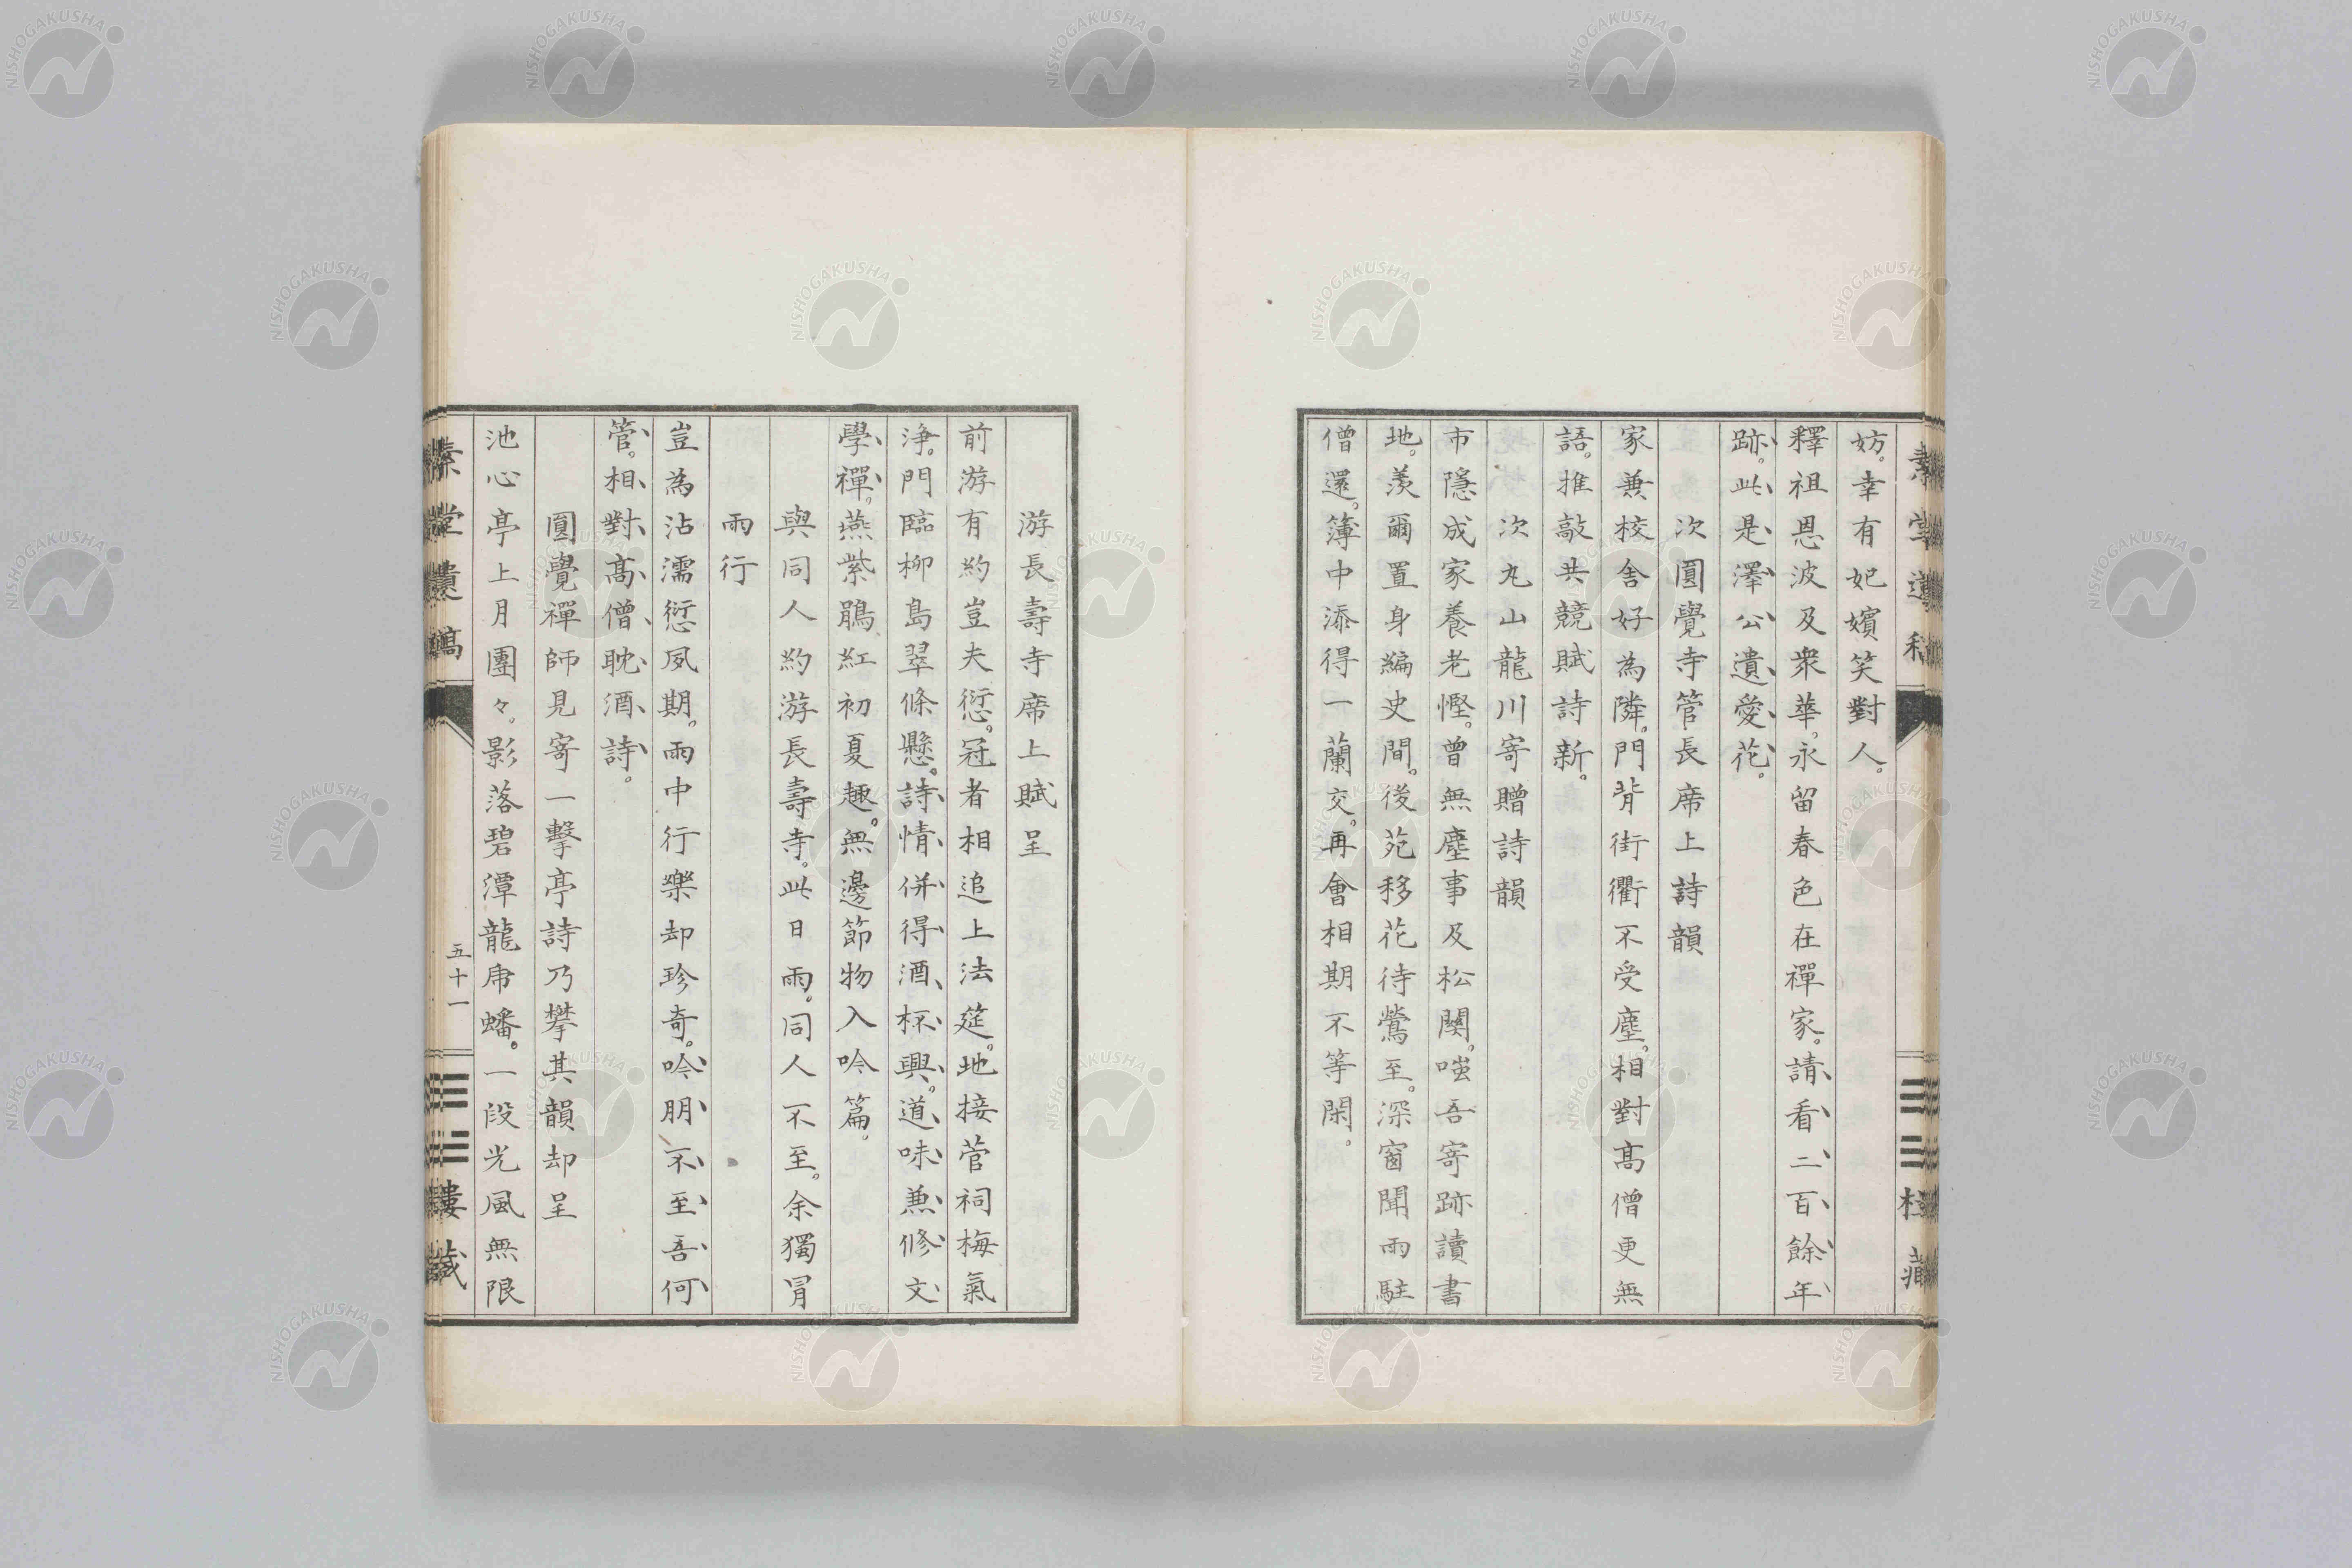 妨。幸有妃嬪笑對人。
釋祖恩波及衆華。永留春色在禪家。請看二百餘年
跡。此是澤公遺愛花。
次圓覺寺管長席上詩韻
家兼校舍好為隣。門背街衢不受塵。相對高僧更無
語。推敲共競賦詩新。
次丸山龍川寄贈詩韻
市隱成家養老慳。曾無塵事及松関。嗤吾寄跡讀書
地。羨爾置身編史間。後苑移花待鶯至。深窗聞雨駐
僧還。簿中添得一蘭交。再會相期不等閑。
游長壽寺席上賦呈
前游有約豈夫愆。冠者相追上法筵。地接菅祠梅氣
浄。門臨柳島翠條懸。詩情併得酒杯興。道味兼修文
學禪。燕紫鵑紅初夏趣。無邊節物入吟篇。
與同人約游長壽寺。此日雨。同人不至。余獨冒
雨行
豈為沾濡愆夙期。雨中行樂却珍奇。吟朋不至吾何
管。相對高僧耽酒詩。
圓覺禪師見寄一擊亭詩乃攀其韻却呈
池心亭上月團々。影落碧潭龍甩蟠。一段光風無限
素堂遺稿
五十一
樓藏
NISHOGAKUSHA